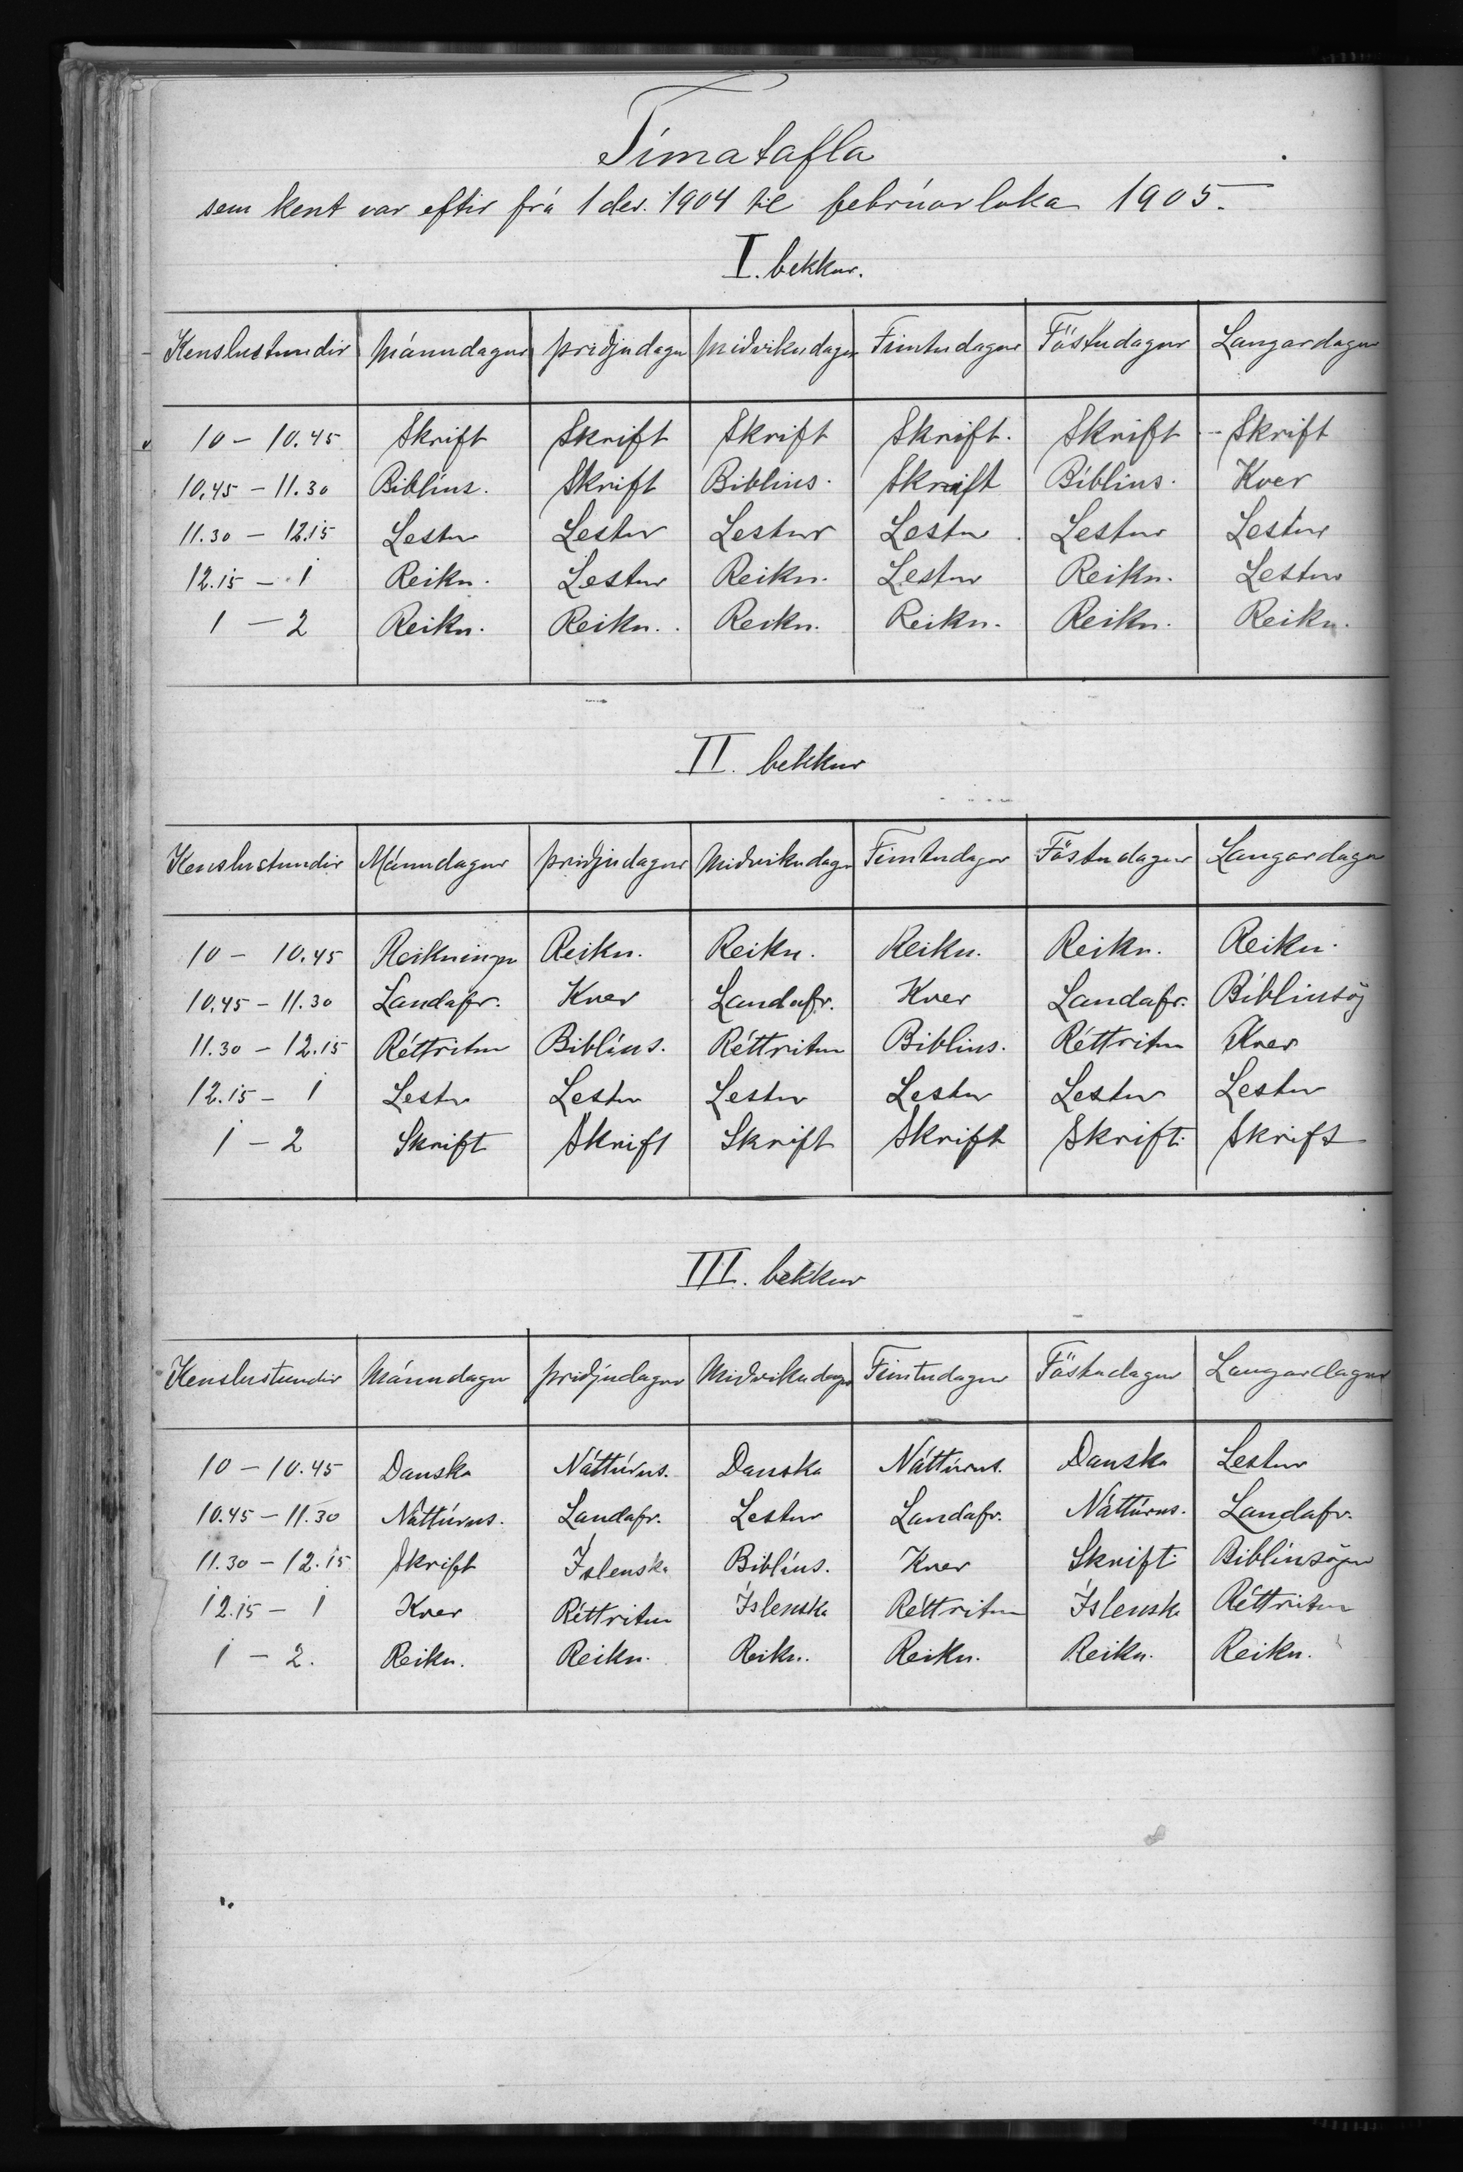 Tímatafla
sem kent var eftir frá 1 des. 1904 til febrúarloka 1905.
I. bekkur.
Kenslustundir Mánudagur Þriðjudagur Miðvikudagur Fimtudagur Föstudagur Laugardagur
10 – 10.45 Skrift Skrift Skrift Skrift. Skrift Skrift
10.45 – 11.30 Biblíus. Skrift Biblíus. Skrift Biblíus. Kver
11.30 – 12.15 Lestur Lestur Lestur Lestur Lestur Lestur
12.15 – 1 Reikn. Lestur Reikn. Lestur Reikn. Lestur
1 – 2 Reikn. Reikn. Reikn. Reikn. Reikn. Reikn.
II. bekkur
Kenslustundir Mánudagur Þriðjudagur Miðvikudagur Fimtudagur Föstudagur Laugardagur
10 – 10.45 Reikningur Reikn. Reikn. Reikn. Reikn. Reikn.
10.45 – 11.30 Landafr. Kver Landafr. Kver Landafr. Biblíusög
11.30 – 12.15 Réttritun Biblíus. Réttritun Biblíus. Réttritun Kver
12.15 – 1 Lestur Lestur Lestur Lestur Lestur Lestur
1 – 2 Skrift Skrift Skrift Skrift Skrift Skrift
III. bekkur
Kenslustundir Mánudagur Þriðjudagur Miðvikudagur Fimtudagur Föstudagur Laugardagur
10 – 10.45 Danska Náttúrus. Danska Náttúrus. Danska Lestur
10.45 – 11.30 Náttúrus. Landafr. Lestur Landafr. Náttúrus. Landafr.
11.30 – 12.15 Skrift Íslenska Biblíus. Kver Skrift Biblíusögur
12.15 – 1 Kver Réttritun Íslenska Réttritun Íslenska Réttritun
1 – 2. Reikn. Reikn. Reikn. Reikn. Reikn. Reikn.